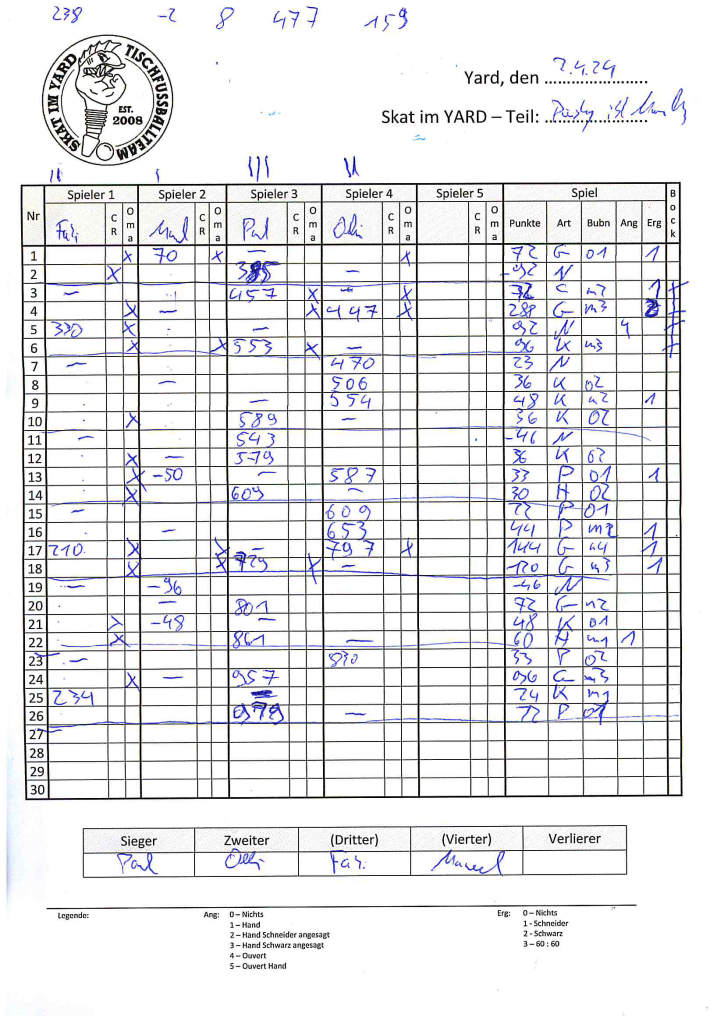 238 -2 8 477 159
SKAT IM YARD
TISCHFUSSBALLTEAM
EST. 2008
Yard, den 2.4.24
Skat im YARD – Teil:
Spieler 1 Spieler 2 Spieler 3 Spieler 4 Spieler 5 Spiel Bock
Nr Fari CR Oma CR Oma Paul CR Oma Olli CR Oma CR Oma Punkte Art Bubn Ang Erg
1 x 70 x — x 72 G 01 1
2 x 385 — -92 N
3 — 457 x x m2 1
4 x — x 447 x 288 G m3
5 330 x — 92 N 4
6 x x 553 x — 96 K m3
7 — 470 23 N
8 — 506 36 K 02
9 — 554 48 K m2 1
10 x 589 — 36 K 02
11 — 543 -46 N
12 x — 579 36 K 02
13 x -50 — 587 33 P 01 1
14 x 609 — 30 H 02
15 — 609 22 P 01
16 — 653 44 P m2 1
17 210 x x — 797 x 144 G m4 1
18 x x 729 x — -120 G m3 1
19 — -96 -46 N
20 — 801 72 G m2
21 x -48 — 48 K 01
22 x 861 — 60 H m1 1
23 — 830 33 P 02
24 x — 957 96 G m3
25 234 — 24 K m1
26 979 — 22 P 01
27 —
28
29
30
Sieger Zweiter (Dritter) (Vierter) Verlierer
Paul Olli Fari Marcel
Legende: Ang: 0 – Nichts Erg: 0 – Nichts
1 – Hand 1 - Schneider
2 – Hand Schneider angesagt 2 - Schwarz
3 – Hand Schwarz angesagt 3 – 60 : 60
4 – Ouvert
5 – Ouvert Hand